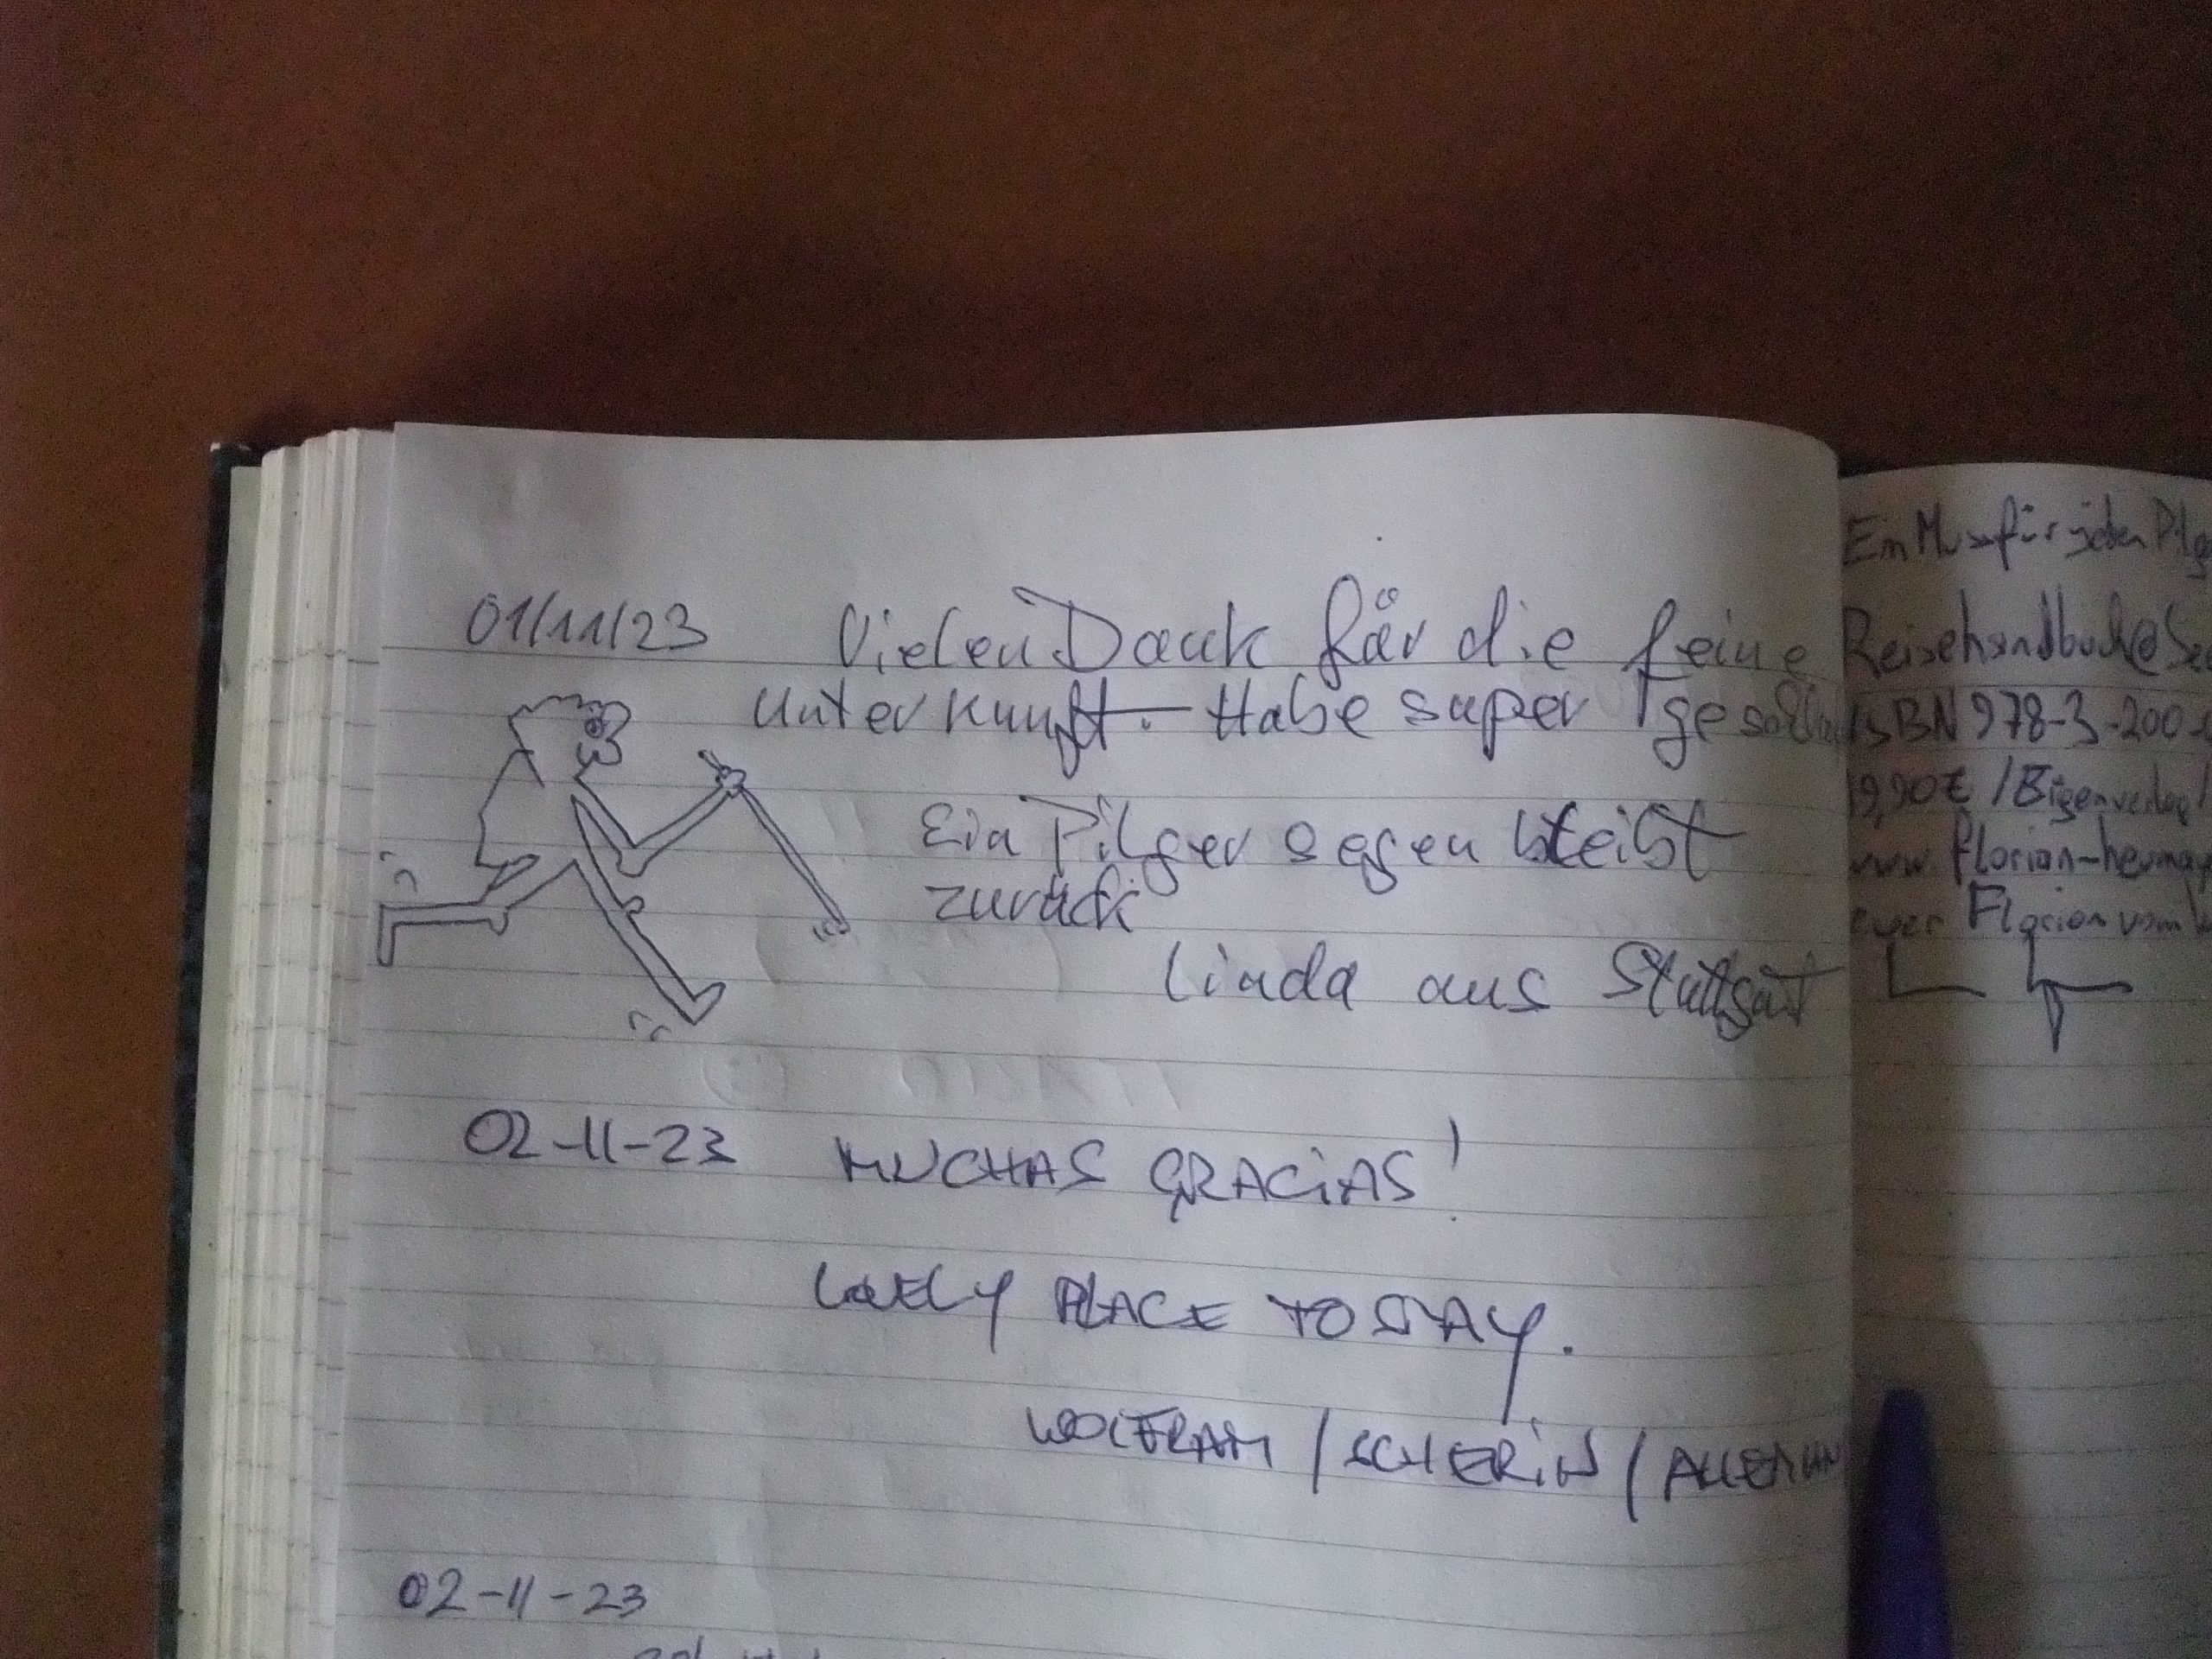 01/11/23 Vielen Dank für die feine
Unterkunft. Habe super
Ein Pilgersegen bleibt
zurück
Linda aus Stuttgart
02-11-23 MUCHAS GRACIAS!
LOVELY PLACE TO STAY.
WOLFRAM / /
02-11-23
Ein Muss für jeden
Reisehandbuch@
ISBN 978-3-200
19,90€ / Eigenverlag
www.florian-
euer Florian vom